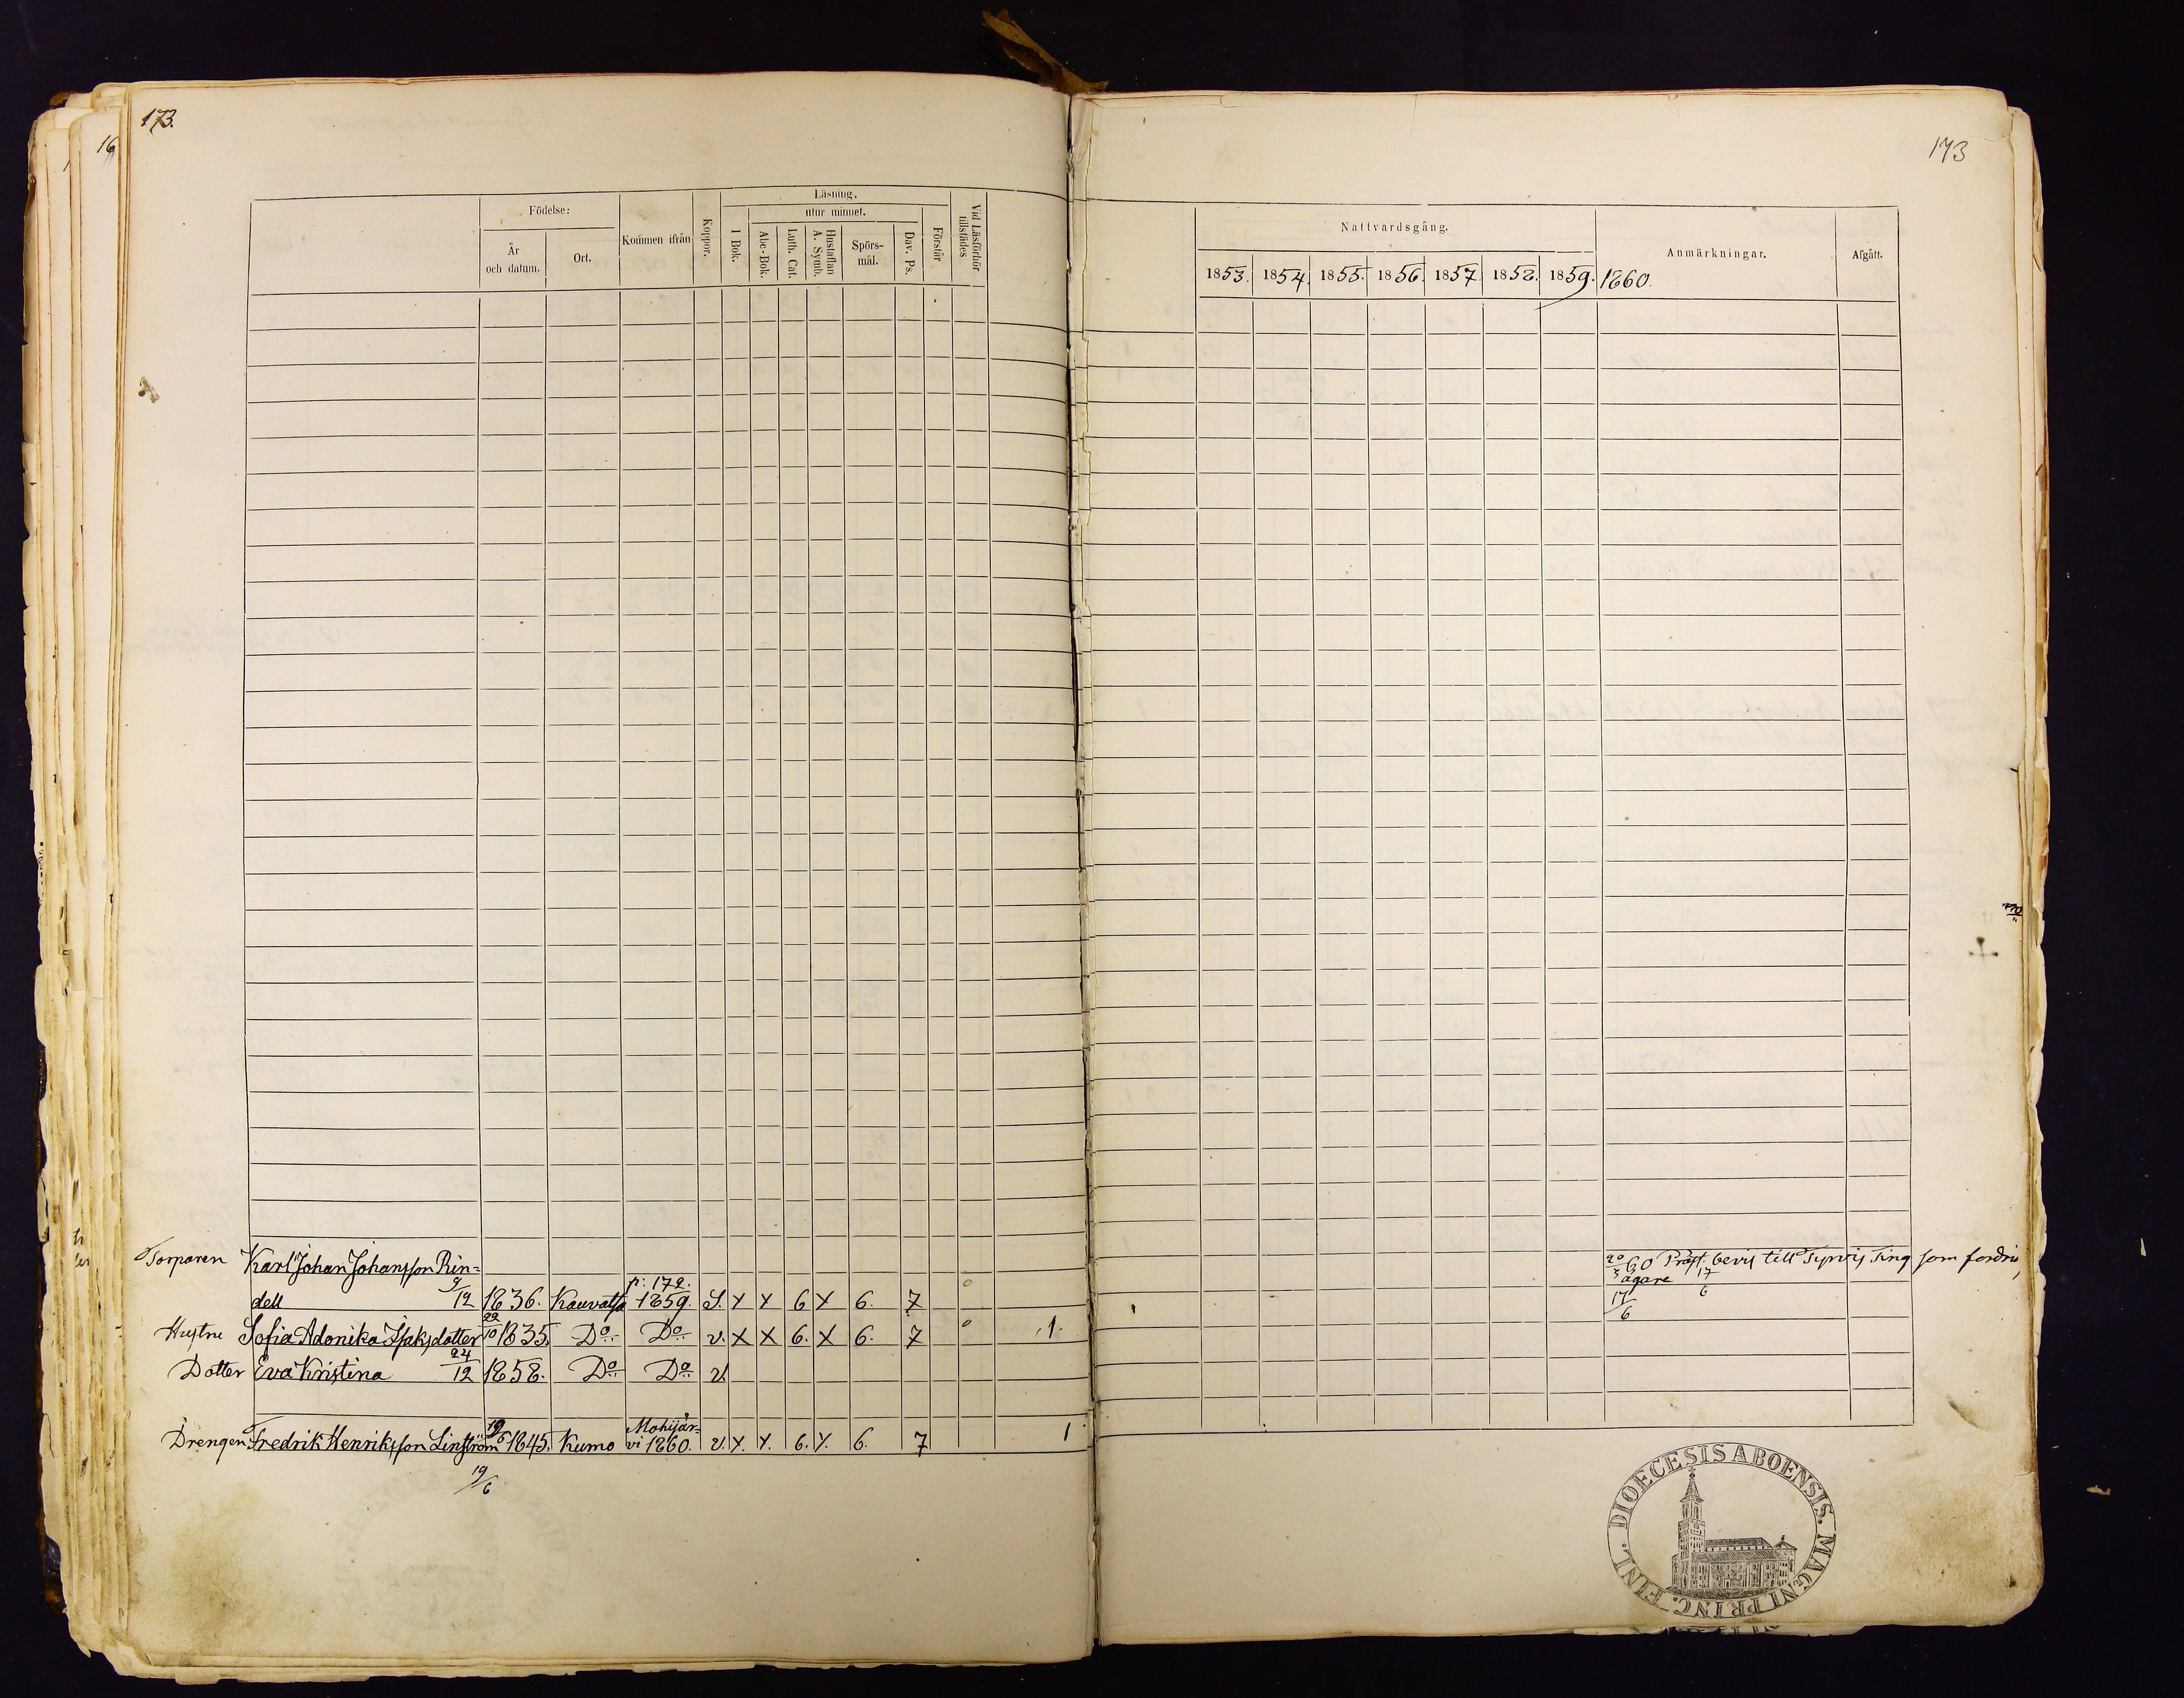 173.
16
173
Födelse:
År och datum.
Ort.
Kommen ifrån
Koppor.
Läsning,
I Bok.
utur minnet.
Abc-Bok.
Luth. Cat.
Hustaflan A. Symb.
Spörs-mål.
Dav. Ps.
Förstår
Vid Läsförhör tillstädes
Nattvardsgång.
1853. 1854. 1855. 1856. 1857. 1858. 1859. 1860.
Anmärkningar.
Afgått.
Torparen Karl Johan Johansson Rin=
dell 9/12 1836. Kauvatsa p. 172. 1859. S. x x 6 x 6. 7 0
Hustru Sofia Adonika Isaksdotter 22/10 1835. Do Do v. x x 6. x 6. 7 0 1.
Dotter Eva Kristina 24/12 1858. Do Do v.
Drengen Fredrik Henriksson Linström 19/6 1845. Kumo Mohijär=
vi 1860. v. x. x. 6. x. 6. 7 1
19/6
20/3 60 Präst. bevis till Tyrvis Ting som fordris
ägare 17/6
17/6
DIOECESIS ABOENSIS. MAGNI PRINC. FINL.